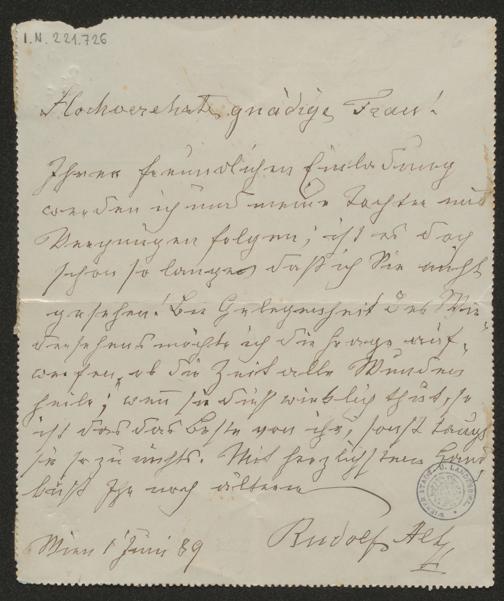 I.N. 221.726
Hochverehrte gnädige Frau!
Ihrer freundlichen Einladung
werden ich und meine Tochter mit
Vergnügen folgen; ist es doch
schon so lange daß ich Sie nicht
gesehen! Bei Gelegenheit des Wie
dersehens möchte ich die Frage auf-
werfen, ob die Zeit alle Wunden
heile; wenn sie dieß wirklich thut, so
ist das das Beste von ihr, sonst taugt
sie ja zu nichts. Mit herzlichsten Hand
kuß Ihr noch älterer
Wien 1 Juni 89
Rudolf Alt